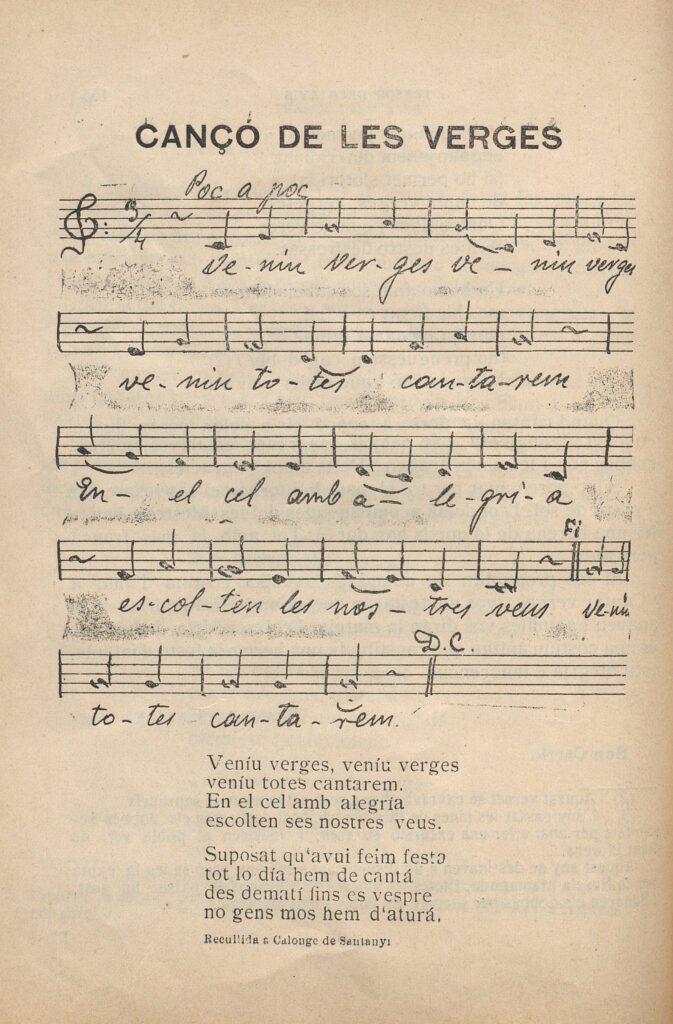 CANÇÓ DE LES VERGES
Poc a poc
3/4
Ve-niu ver-ges ve-niu verges
ve-niu to-tes can-ta-rem
En-el cel amb a-le-gri-a
Fi
es-col-ten les nos-tres veus ve-niu
D.C.
to-tes can-ta-rem.
Veníu verges, veníu verges
veníu totes cantarem.
En el cel amb alegría
escolten ses nostres veus.
Suposat qu'avui feim festa
tot lo día hem de cantá
des dematí fins es vespre
no gens mos hem d'aturá.
Recullida a Calonge de Santanyí